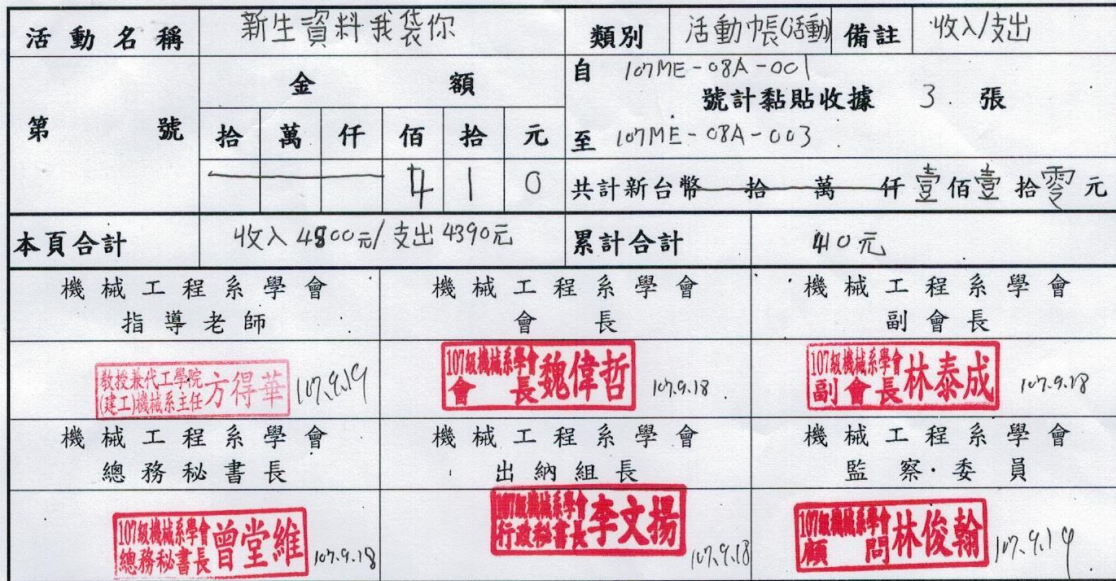 活動名稱 新生資料我袋你 類別 活動帳(活動) 備註 收入/支出
金額
自 107ME-08A-001
號計黏貼收據 3 張
至 107ME-08A-003
第 號 拾 萬 仟 佰 拾 元
4 1 0
共計新台幣 拾 萬 仟 壹 佰 壹 拾 零 元
本頁合計 收入 4800元/支出 4390元 累計合計 410元
機械工程系學會 機械工程系學會 機械工程系學會
指導老師 會長 副會長
教授兼代工學院
(建工)機械系主任 方得華 107.9.19
107級機械系學會
會長 魏偉哲 107.9.18
107級機械系學會
副會長 林泰成 107.9.18
機械工程系學會 機械工程系學會 機械工程系學會
總務秘書長 出納組長 監察·委員
107級機械系學會
總務秘書長 曾堂維 107.9.18
107級機械系學會
行政秘書長 李文揚 107.9.18
107級機械系學會
顧問 林俊翰 107.9.19